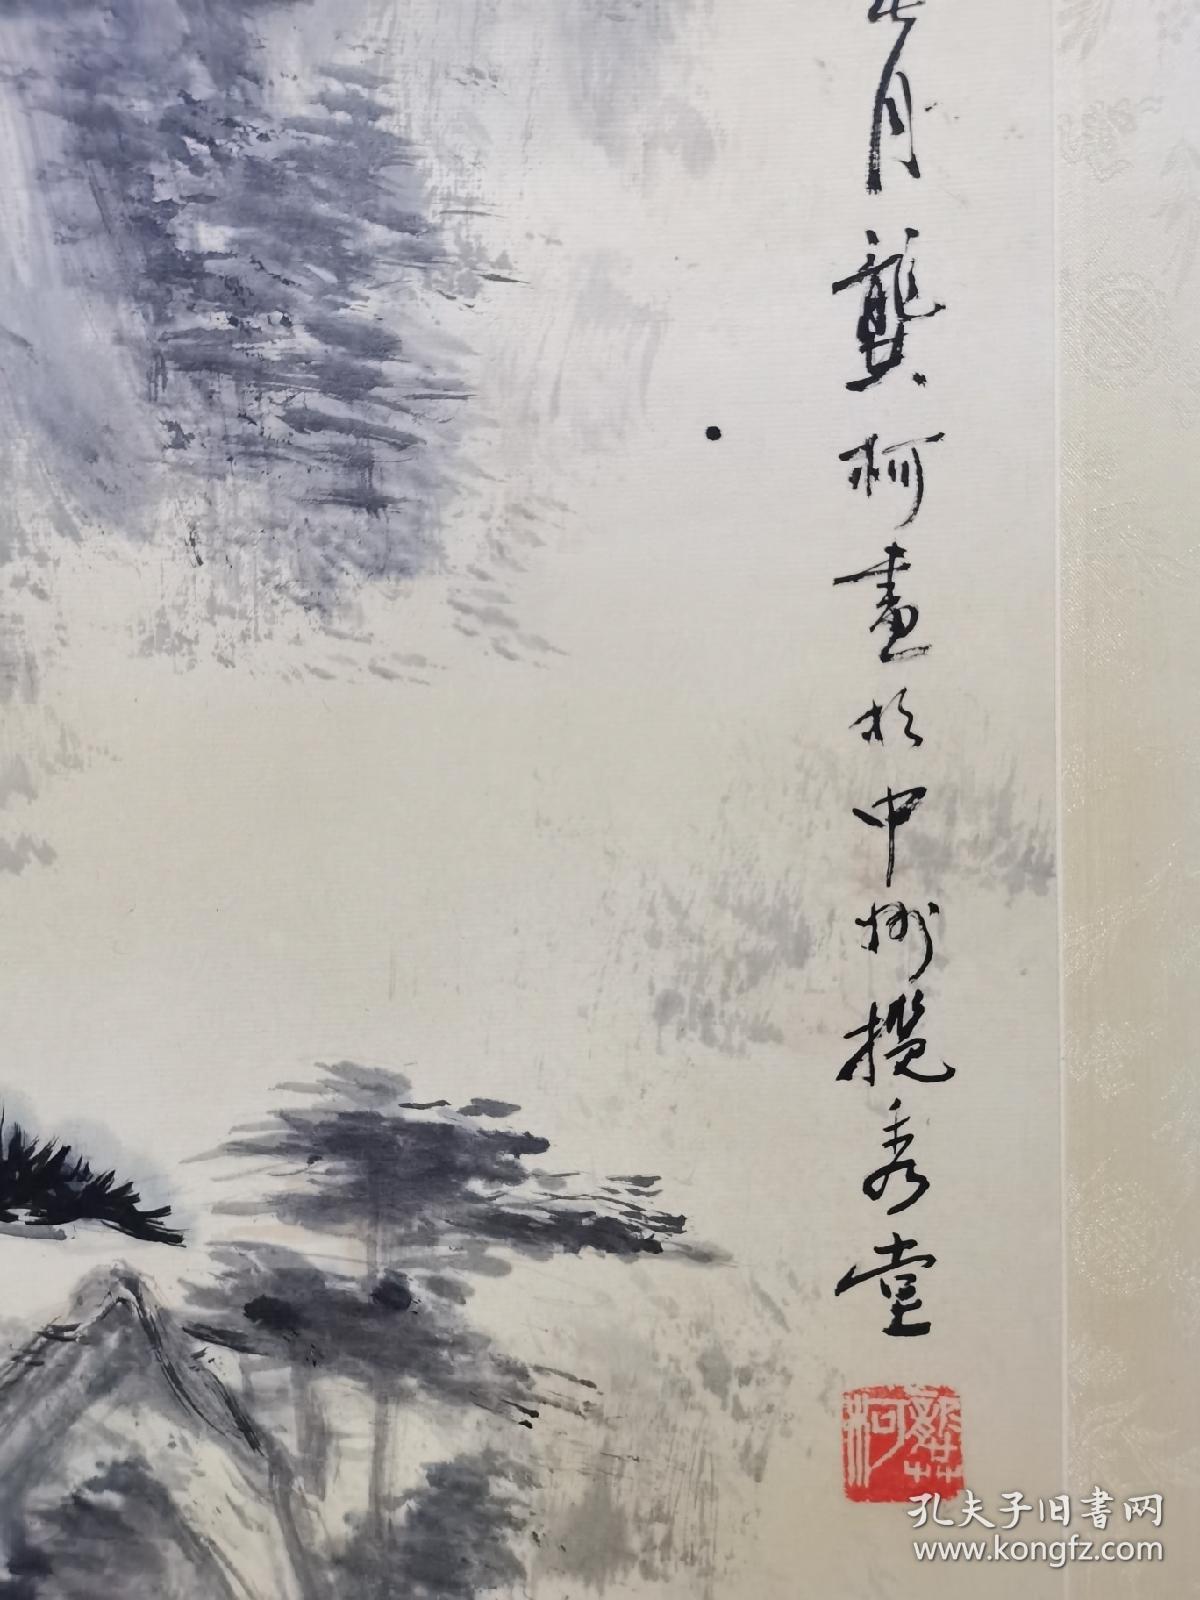 月龔柯畫於中州攬秀堂
龔柯
孔夫子旧书网
www.kongfz.com